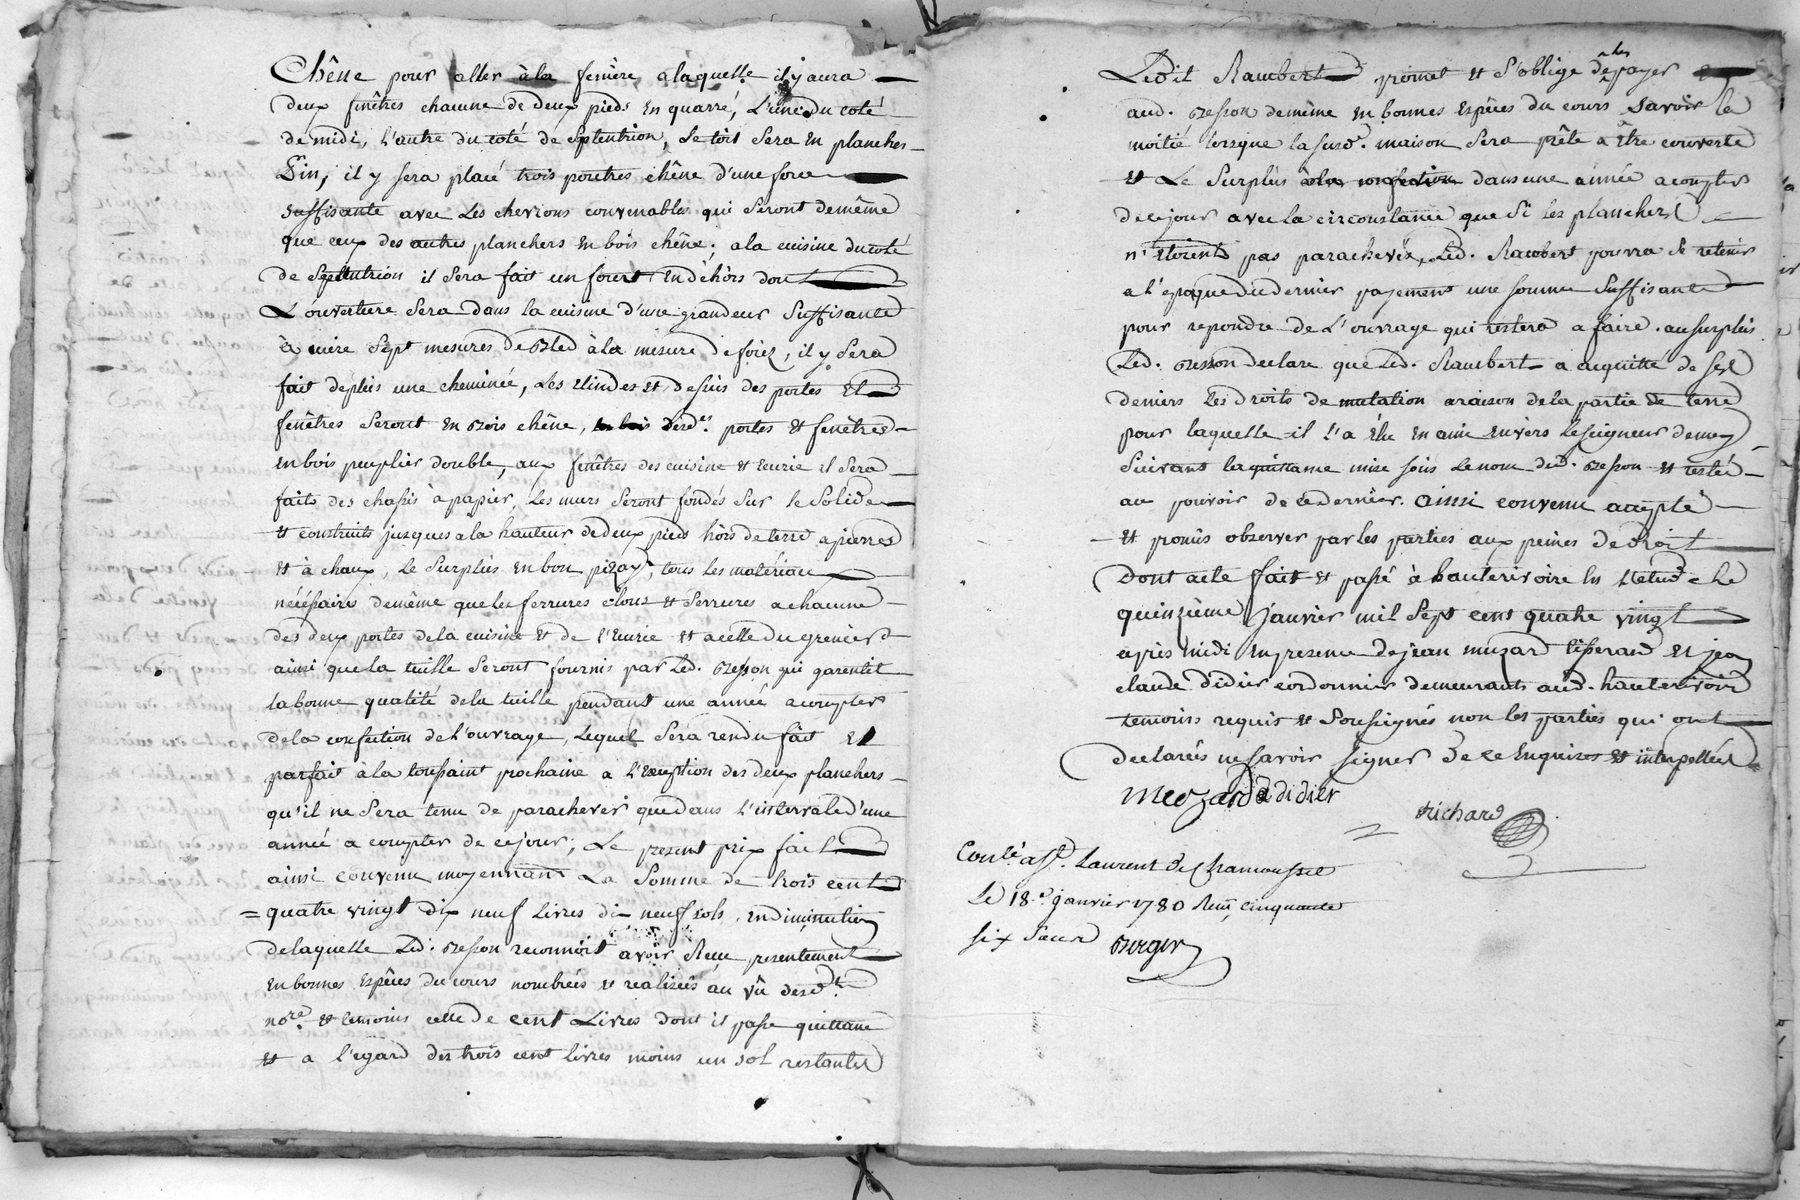 Chêne pour aller à la feniere, a laquelle il y aura
deux fenêtres chacune de deux pieds en quarré, L'une du coté
de midi, L'autre du coté de Septentrion, Le toit Sera en planches
Pin, il y sera placé trois poutres chêne d'une force
Suffisante avec Les chevrons convenables qui Seront demême
que ceux des autres planchers en bois chêne. a la cuisine du coté
de Septentrion il Sera fait un fourt en déhors dont
L'ouverture Sera dans la cuisine d'une grandeur Suffisante
à cuire Sept mesures de Bled à la mesure de forez, il y Sera
fait deplus une cheminée, Les et dessus des portes Et
fenêtres Seront en Bois chêne, desd.es portes et fenêtres
en bois peuplier double, aux fenêtres des cuisine et écurie il Sera
faits des chassis à papier, Les murs Seront fondés Sur le Solide
et construits jusques a la hauteur de deux pieds hors de terre a pierres
et à chaux, le Surplus en bon pizay, tous les matériaux
nécéssaires demême que les ferrures clous et Serrures a chacune
des deux portes de la cuisine et de l'écurie et a celle du grenier
ainsi que la tuille Seront fournis par Led. Besson qui garentit
la bonne qualité de la tuille pendant une année a compter
de la confection de l'ouvrage, Lequel Sera rendu fait et
parfait à la toussaint prochaine a L'exeption des deux planchers
qu'il ne Sera tenu de parachever que dans L'intervale d'une
année a compter de ce jour, Le présent prix fait
ainsi convenu moyennant La Somme de trois cent
quatre vingt dix neuf Livres dix neuf sols, en diminution
de laquelle Led. Besson reconnoit avoir Reçu presentement
en bonnes Espêces du cours nombrées et realisées au vû desd.ts
no.re et temoins celle de cent Livres dont il passe quittance
et a l'egard des trois cent livres moins un sol restantes
Ledit Rambert promet et S'oblige de les payer
aud. Besson demême en bonnes Espêces du cours Savoir la
moitié lorsque la susd. maison Sera prête a Etre couverte
et Le Surplus dans une année a compter
de ce jour avec la circonstance que Si Les planchers
n'étoient pas parachevés, Led. Rambert pourra Se retenir
a l'epoque du dernier payement une Somme Suffisante
pour repondre de L'ouvrage qui restera a faire. au surplus
Led. Besson declare que Led. Rambert a acquitté de Ses
deniers Les Droits de mutation a raison de la partie de terre
pour laquelle il l'a élu en ami envers le seigneur
Suivant la quittance mise sous Le nom dud. Besson et restée
au pouvoir de ce dernier. Ainsi convenu accepté
et promis observer par les parties aux peines de droit
Dont acte fait et passé à hauterivoire en L'étude Le
quinzième Janvier mil Sept cent quatre vingt
après midi en presence de jean muzard tisserand et jean
claude didier cordonnier demeurants aud. hauterivoire
temoins requis et Soussignés non Les parties qui ont
declarées ne Savoir Signer de ce Enquises et interpellées
Meozard didier
Richard
Con.lé a S.t Laurent de Chamousset
Le 18.e janvier 1780 Reçu cinquante
six Sous Berger